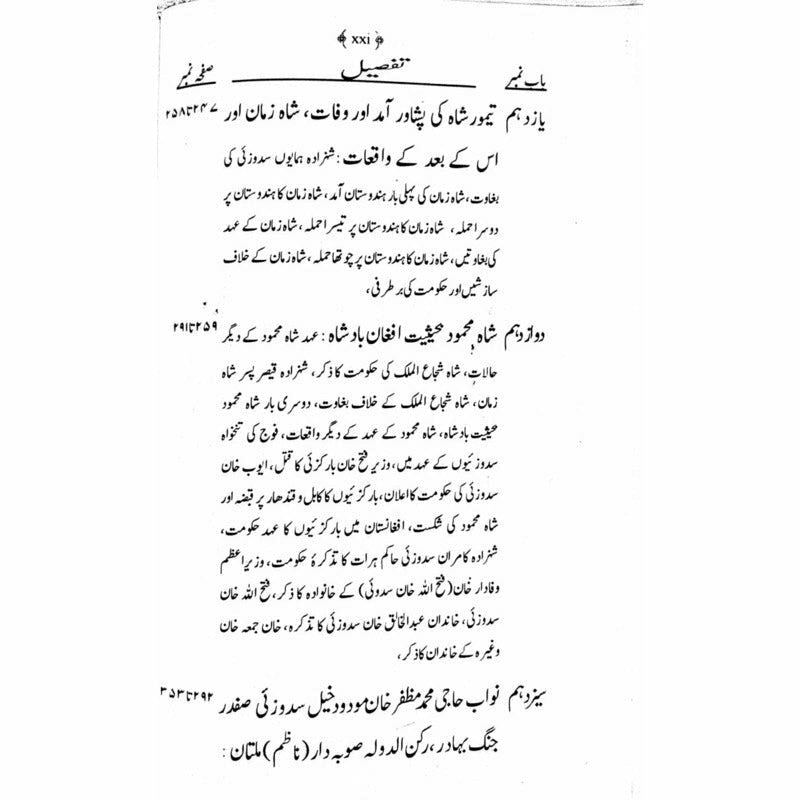 ﴿ xxi ﴾
باب نمبر تفصیل صفحہ نمبر
یازدہم تیمور شاہ کی پشاور آمد اور وفات، شاہ زمان اور ۲۴۷ تا ۲۵۸
اس کے بعد کے واقعات : شنرادہ ہمایوں سدوزئی کی
بغاوت، شاہ زمان کی پہلی بار ہندوستان آمد، شاہ زمان کا ہندوستان پر
دوسرا حملہ، شاہ زمان کا ہندوستان پر تیسرا حملہ، شاہ زمان کے عہد
کی بغاوتیں، شاہ زمان کا ہندوستان پر چوتھا حملہ، شاہ زمان کے خلاف
سازشیں اور حکومت کی برطرفی،
دوازدہم شاہ محمود بحیثیت افغان بادشاہ : عہد شاہ محمود کے دیگر ۲۵۹ تا ۲۹۱
حالات، شاہ شجاع الملک کی حکومت کا ذکر، شنرادہ قیصر پسر شاہ
زمان، شاہ شجاع الملک کے خلاف بغاوت، دوسری بار شاہ محمود
بحیثیت بادشاہ، شاہ محمود کے عہد کے دیگر واقعات، فوج کی تنخواہ
سدوزئیوں کے عہد میں، وزیر فتح خان بارکزئی کا قتل، ایوب خان
سدوزئی کی حکومت کا اعلان، بارکزئیوں کا کابل و قندھار پر قبضہ اور
شاہ محمود کی شکست، افغانستان میں بارکزئیوں کا عہد حکومت،
شنرادہ کامران سدوزئی حاکم ہرات کا تذکرۂ حکومت، وزیر اعظم
وفادار خان (فتح اللہ خان سدوئی) کے خانوادہ کا ذکر، فتح اللہ خان
سدوزئی، خاندان عبدالخالق خان سدوزئی کا تذکرہ، خان جمعہ خان
وغیرہ کے خاندان کا ذکر،
سیزدہم نواب حاجی محمد مظفر خان مودود خیل سدوزئی صفدر ۲۹۲ تا ۳۵۳
جنگ بہادر، رکن الدولہ صوبہ دار (ناظم) ملتان :